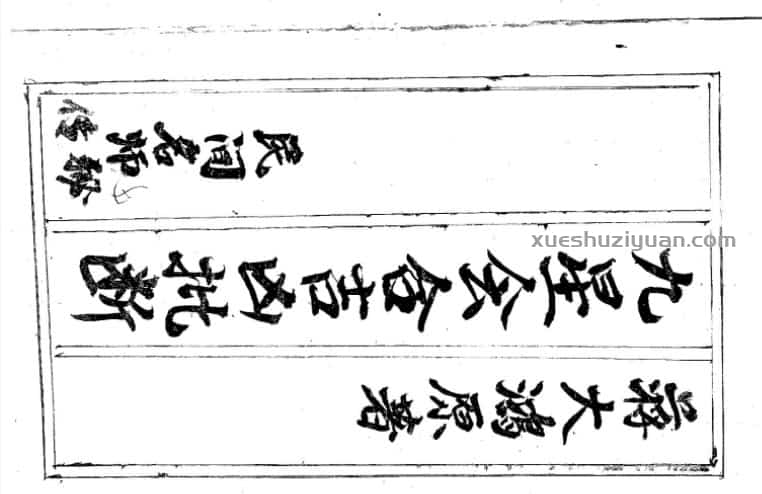 蒋大鸿原著
九星会合吉凶批断
民间名师
秘传
xueshuziyuan.com